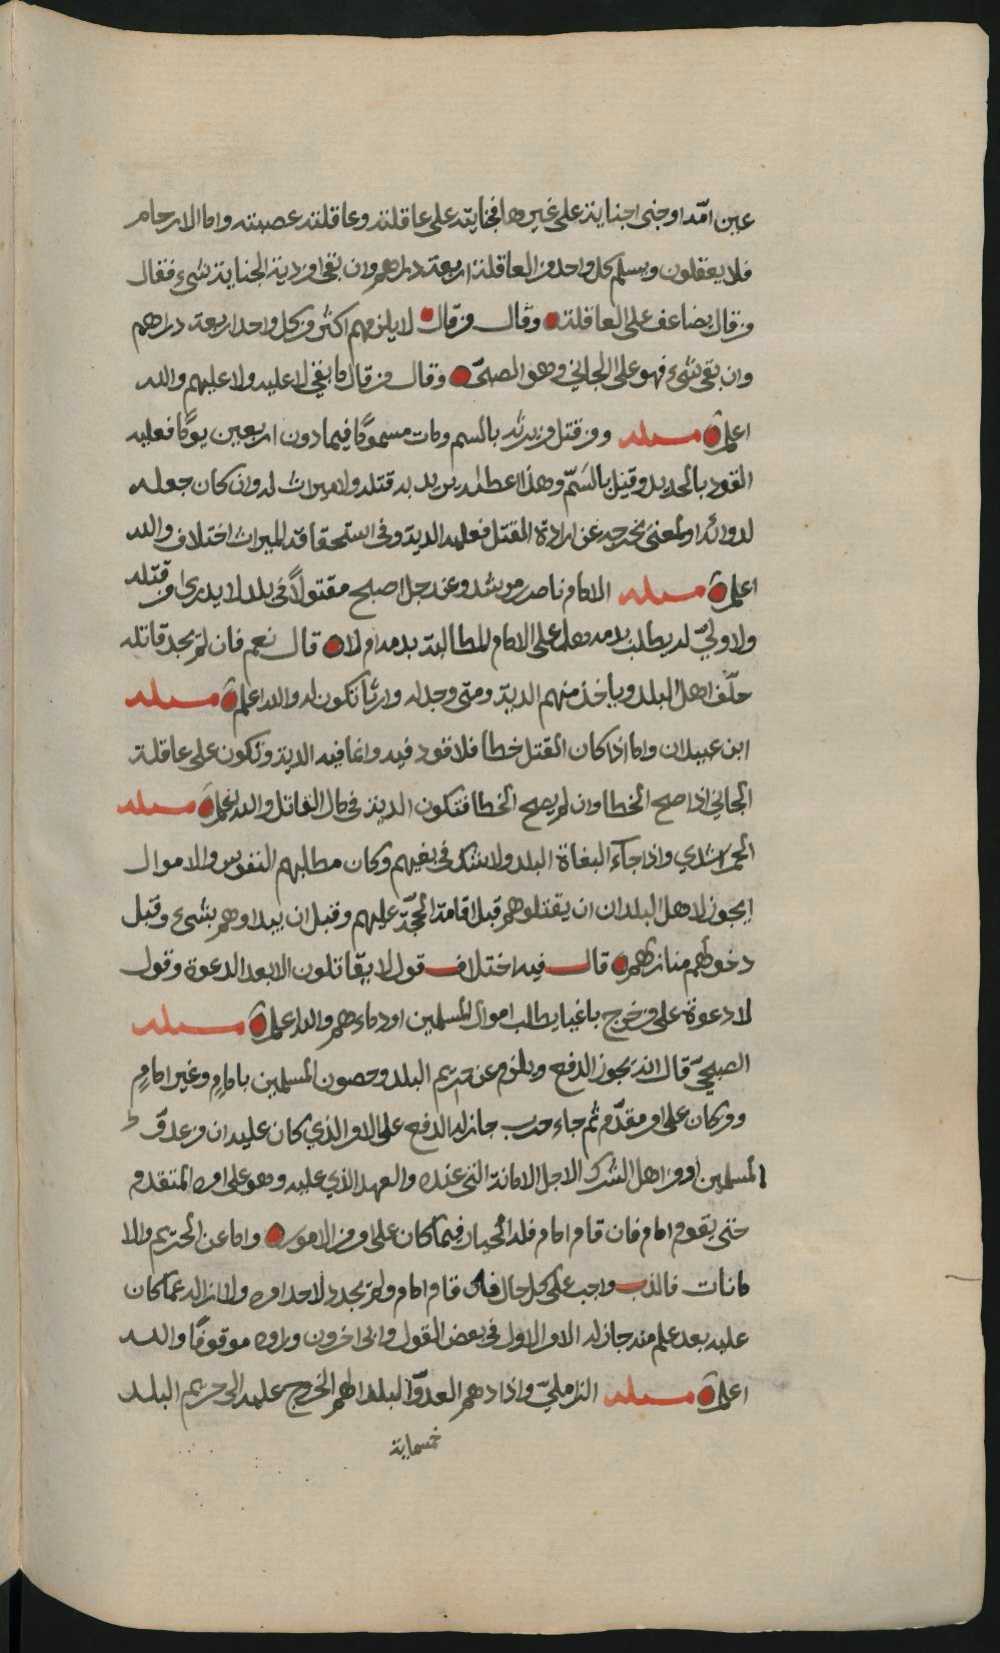 عين امّه او جنى جناية على غيرها فجنايته على عاقلته وعاقلته عصبته واما الارحام
فلا يعقلون ويسلم كل واحد من العاقلة اربعة دراهم وان بقي من دية الجناية شيء فقال
من قال يضاعف على العاقلة وقال من قال لا يلزمهم اكثر من كل واحد اربعة دراهم
وان بقي شيء فهو على الجاني وهو الصبيّ وقال من قال ما بقي لا عليه ولا عليهم والله
اعلم مسله ومن قتل من يرثه بالسم ومات مسموما فيما دون اربعين يوما فعليه
القود بالحديد وقيل بالسّمّ وهذا اعطاه يريد به قتله ولا ميراث له وان كان جعله
له دواء او لمعنى يخرجه عن ارادة القتل فعليه الدية وفي استحقاقه للميراث اختلاف والله
اعلم مسله الامام ناصر بن مرشد وعن رجل اصبح مقتولاً في بلد لا يدرى من قتله
ولا وليّ له يطلب بدمه هل على الامام المطالبة بدمه ام لا قال نعم فان لم يجد قاتله
حلّف اهل البلد وياخذ منهم الدية ومتى وجد له وارثا تكون له والله اعلم مسله
ابن عبيدان واما اذا كان القتل خطا فلا قود فيه وانما فيه الدية وتكون على عاقلة
الجاني اذا صح الخطا وان لم يصح الخطا فتكون الدية في مال القاتل والله اعلم مسله
الحمراشدي واذا جآء البغاة البلد ولا شك في بغيهم وكان مطلبهم النفوس والاموال
ايجوز لاهل البلد ان ان يقتلوهم قبل اقامة الحجّة عليهم وقبل ان يبداوهم بشيء وقبل
دخولهم منازلهم قال فيه اختلاف قول لا يقاتلون الا بعد الدعوة وقول
لا دعوة على من خرج باغيا يطلب اموال المسلمين او دماءهم والله اعلم مسله
الصبحيّ قال انه يجوز الدفع ويلزم عن حريم البلد وحصون المسلمين بامامٍ وغير امامٍ
ومن كان على امر مقدّم ثم جاء حرب جاز له الدفع على الامر الذي كان عليه ان من عدوّ
المسلمين او من اهل الشرك الاجل الامانة التي عنده والعهد الذي عليه وهو على امره المتقدم
حتى يقوم امام فان قام امام فله الخيار فيما كان على امر من الامور واما عن الحريم والا
مانات فالذب واجب على كل حال فان قام امام ولم يجدد لاحد امره ولا ازاله عما كان
عليه بعد علم منه جاز له الامر الاول في بعض القول وابى اخرون وراوه موقوفا والله
اعلم مسله الزامليّ واذا دهم العدوّ البلد الهم الخروج عليه الى حريم البلد
خمسماية